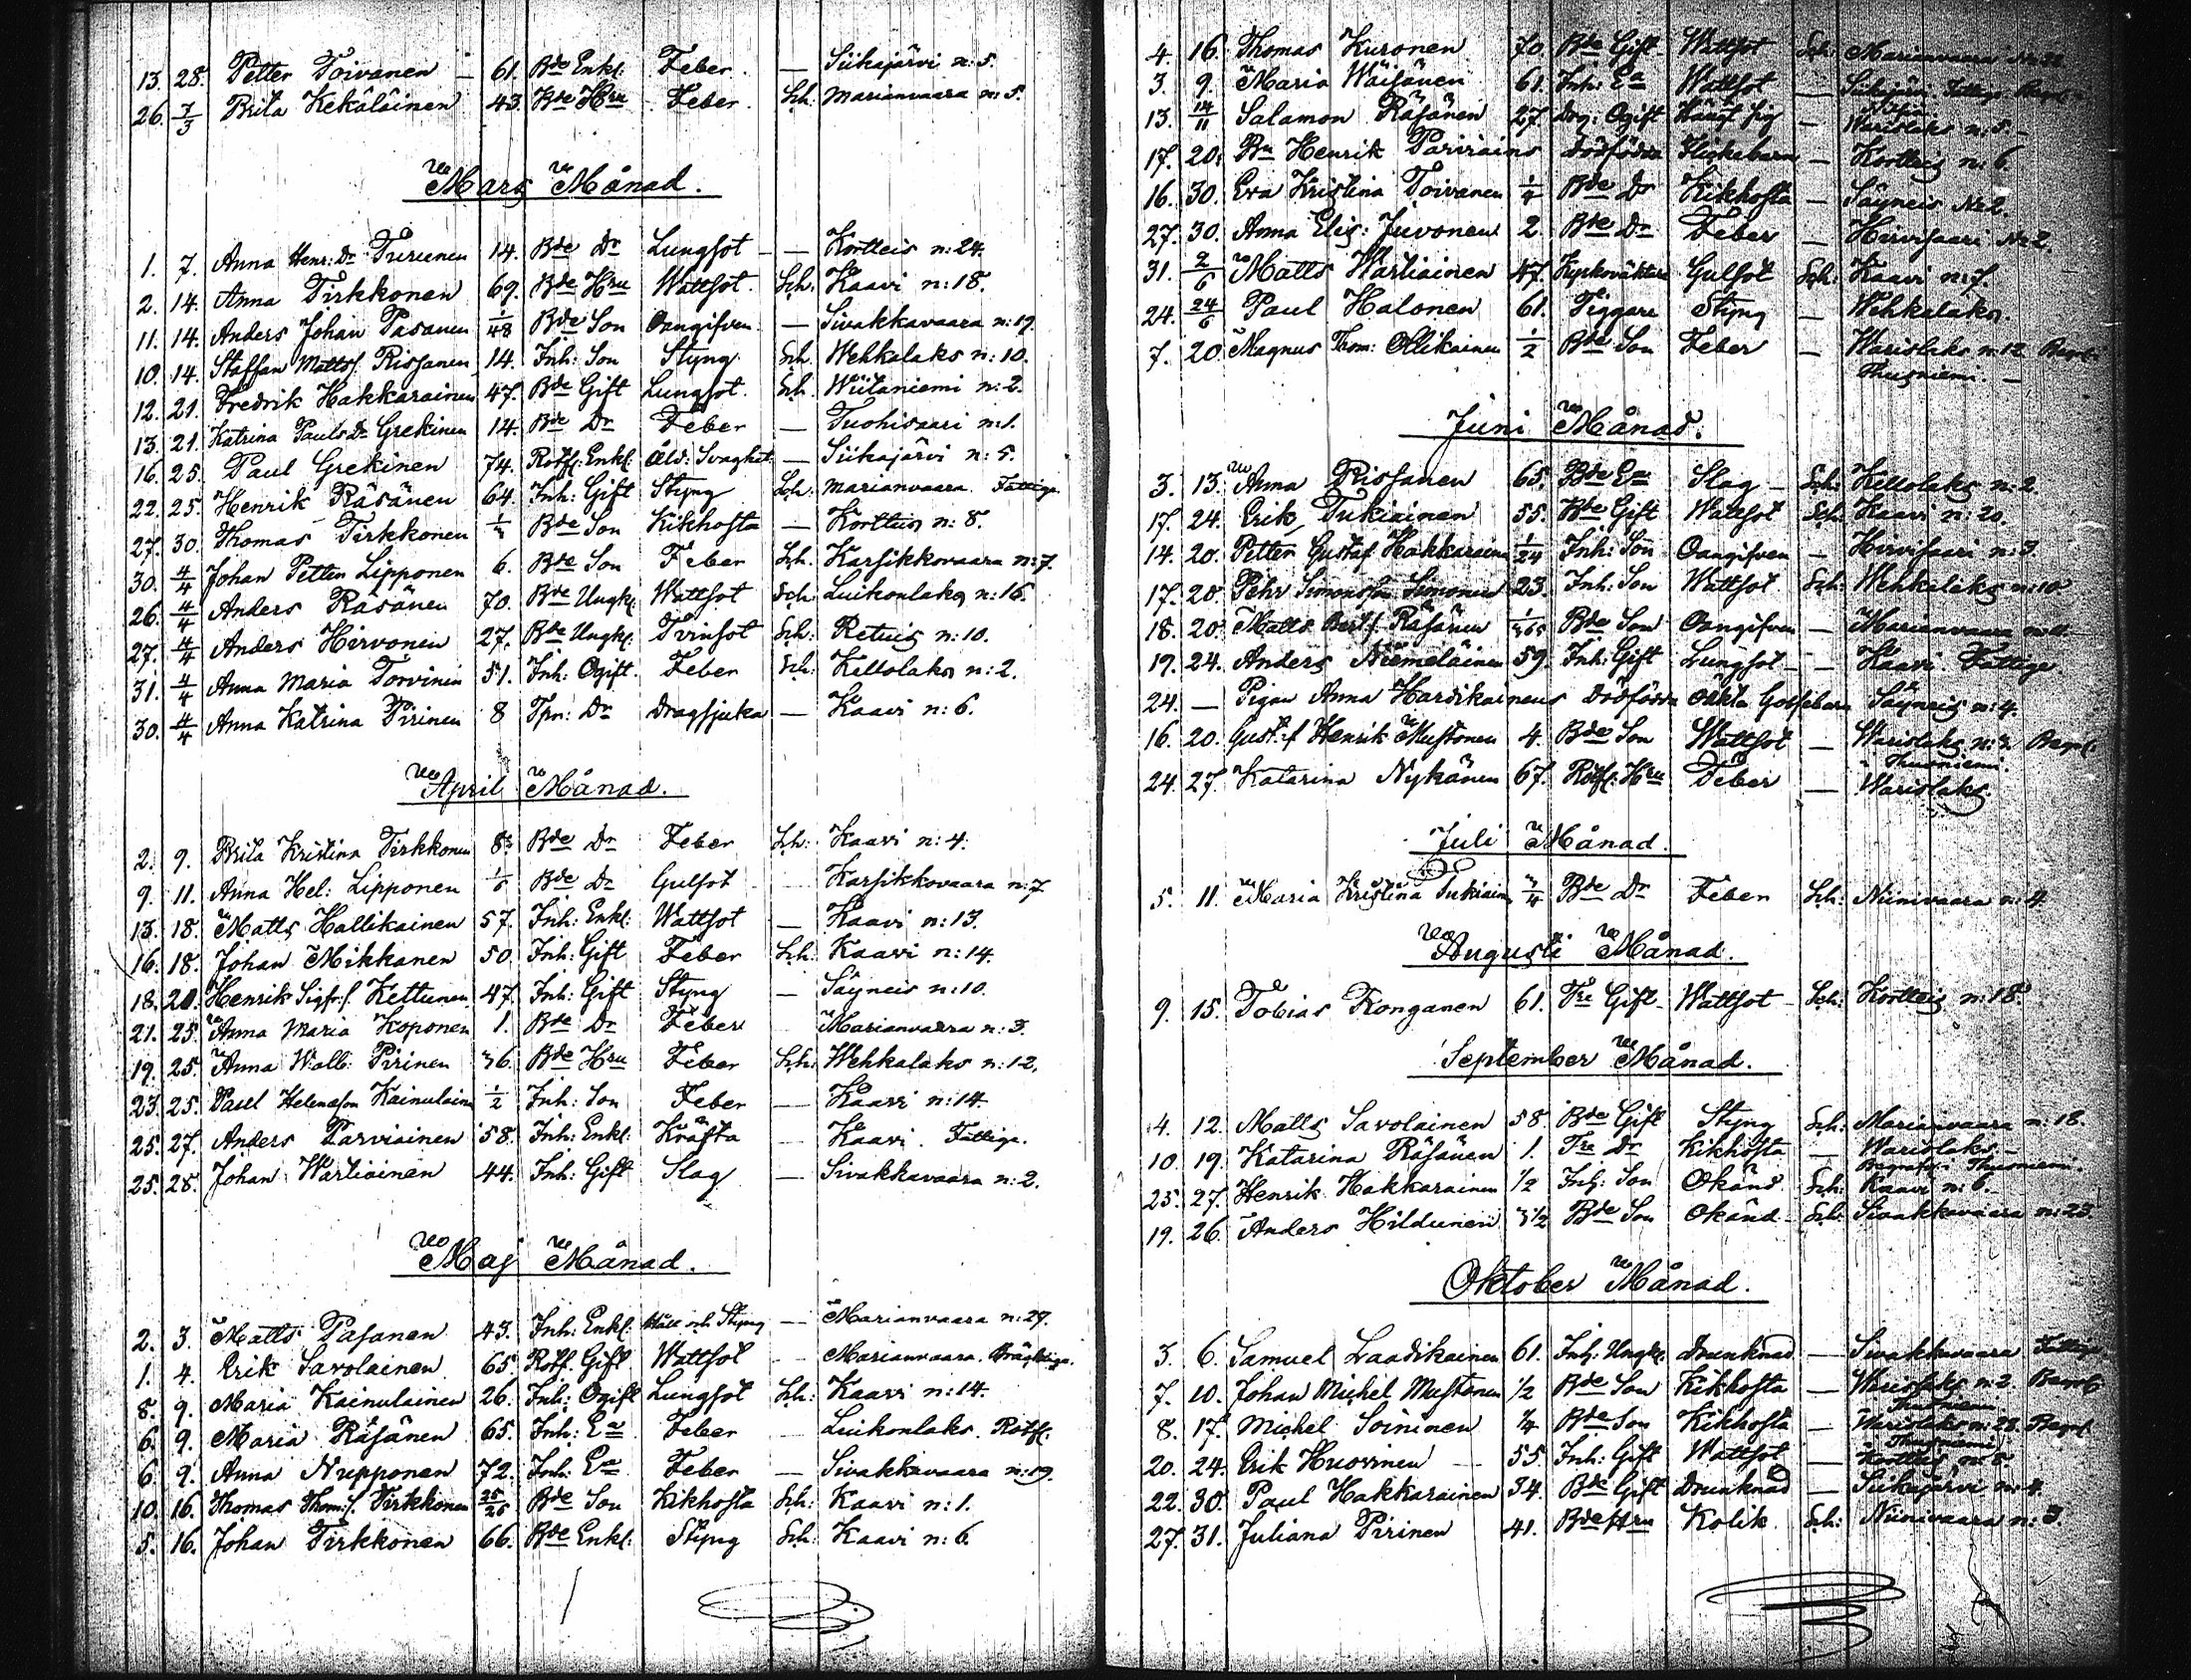 13. 28. Petter Toivanen — 61. Bde Enkl: Feber. — Siikajärvi n: 5.
26. 7/3 Brita Kekäläinen 43. Bde Hru Feber. Sch. Marianvaara n: 5.
Mars Månad.
1. 7. Anna Henr: Dr Turunen 14. Bde Dr Lungsot — Kortteis n: 24.
2. 14. Anna Tirkkonen 69. Bde Hru Wattsot. Sch: Kaavi n: 18.
11. 14. Anders Johan Pasanen 1/48 Bde Son Oangifven. — Sivakkavaara n: 19.
10. 14. Staffan Mattsf. Rissanen 14. Inh: Son Styng. Sch. Wehkalaks n: 10.
12. 21. Fredrik Hakkarainen 47. Bde Gift Lungsot. Sch. Wiitaniemi n: 2.
13. 21. Katrina Pauls Dr Grekinen 14. Bde Dr Feber — Tuohisaari n: 1.
16. 25. Paul Grekinen 74. Rotf: Enkl. Åld: Svaghet — Siikajärvi n: 5.
22. 25. Henrik Räsänen 64. Inh: Gift Styng Sch. Marianvaara. Fattige
27. 30. Thomas Tirkkonen Bde Son Kikhosta — Kortteis n: 8.
30. 4/4 Johan Petter Lipponen 6. Bde Son Feber Sch. Karsikkovaara n: 7.
26. 4/4 Anders Räsänen 70. Bde Ungk: Wattsot Sch. Luikonlaks n: 16.
27. 4/4 Anders Hirvonen 27. Bde Ungk: Tvinsot Sch: Retuis n: 10.
31. 4/4 Anna Maria Torvinin 51. Inh: Ogift. Feber Sch: Kellolaks n: 2.
30. 4/4 Anna Katrina Pirinen 8 Tpr: Dr Dragsjuka — Kaavi n: 6.
April Månad.
2. 9. Brita Kristina Tirkkonen 8. Bde Dr Feber Sch: Kaavi n: 4.
9. 11. Anna Hel: Lipponen 1/6 Bde Dr Gulsot Karsikkovaara n: 7
13. 18. Matts Hallikainen 57. Inh: Enkl: Wattsot — Kaavi n: 13.
16. 18. Johan Mikkanen 50. Inh: Gift Feber Sch: Kaavi n: 14.
18. 20. Henrik Sigfr: f. Kettunen 47. Inh: Gift Styng — Säyneis n: 10.
21. 25. Anna Maria Koponen 1. Bde Dr Feber Marianvaara n: 3.
19. 25. Anna Walb: Pirinen 36. Bde Hru Feber Sch: Wehkalaks n: 12.
23. 25. Paul Helenason Kainulain 1/2 Inh: Son Feber — Kaavi n: 14.
25. 27. Anders Parviainen 58. Inh: Enkl: Kräfta — Kaavi. Fattige.
25. 28. Johan Wartiainen 44. Inh: Gift Slag — Sivakkavaara n: 2.
Maj Månad.
2. 3. Matts Pasanen 43. Inh: Enkl: och Styng — Marianvaara n: 27.
1. 4. Erik Savolainen 65 Rotf. Gift Wattsot Marianvaara.
8. 9. Maria Kainulainen 26. Inh: Ogift Lungsot Sch: Kaavi n: 14.
6. 9. Maria Räsänen 65. Inh: Ea Feber Luikonlaks. Rotf:
6. 9. Anna Nupponen 72. Inh: Ea Feber — Sivakkavaara n: 19.
10. 16. Thomas Thom: f. Tirkkonen Bde Son Kikhosta Sch: Kaavi n: 1.
5. 16. Johan Tirkkonen 66. Bde Enkl: Styng Sch: Kaavi n: 6.
4. 16. Thomas Kuronen 70. Bde Gift Wattsot Sch: Marianvaara
3. 9. Maria Wäisänen 61. Inh: Ea Wattsot — Siikajärvi Fattige
13. 14/11 Salamon Räsänen 27. Drg: Ogift — Warislaks n: 5.
17. 20. Bn Henrik Parviains dödfödda Flickebarn — Kortteis n: 6
16. 30. Eva Kristina Toivanen 1/4 Bde Dr Kikhosta — Säyneis No 2.
27. 30. Anna Elis: Juvonen 2. Bde Dr Feber — Hirvisaari No 2.
31. 2/6 Matts Wartiainen 47. Kyrkoväktare Gulsot Sch: Kaavi n: 7.
24. 24/6 Paul Halonen 61. Tiggare Styng — Wehkalaks.
7. 20. Magnus Thom: Ollikainen 1/2 Bde Son Feber — Warislaks n: 12 Begr:
Thusniemi. —
Juni Månad.
3. 13. Anna Rissanen 65. Bde Ea Slag — Sch: Kellolaks n: 2.
17. 24. Erik Tukiainen 55. Bde Gift Wattsot Sch: Kaavi n: 20.
14. 20. Petter Gustaf Hakkarainen 1/24 Inh: Son Oangifven — Hirvisaari n: 3.
17. 20. Pehr Simonsson Simonen 23. Inh. Son Wattsot Sch: Wehkalaks n: 10
18. 20. Matts Räsänen Bde Son Oangifven — Marianvaara
19. 24. Anders Niemeläinen 59. Inh: Gift Lungsot — Kaavi Fattige
24. — Pigan Anna Hardikainens Dödfödda oäkta Gossebarn Säyneis n: 4.
16. 20. Gust: f Henrik Mustonen 4. Bde Son Wattsot — Warislaks n: 2. Begr:
Thusniemi.
24. 27. Katarina Nykänen 67. Rotf: Hru Feber — Warislaks.
Juli Månad.
5. 11. Maria Kristina Tukiain 3/4 Bde Dr Feber Sch: Niinivaara n: 4
Augusti Månad.
9. 15. Tobias Konganen 61. Fre Gift Wattsot Sch: Kortteis n: 18.
September Månad.
4. 12. Matts Savolainen 58. Bde Gift Styng Sch: Marianvaara n: 18.
10. 19 Katarina Räsänen 1. Fre Dr Kikhosta — Warislaks —
Thusniemi.
25. 27. Henrik Hakkarainen 1/2 Inh: Son Okänd. Sch: Kaavi n: 6.
19. 26. Anders Hildunen 3 1/2 Bde Son Okänd Sch: Sivakkavaara n: 23.
Oktober Månad.
3. 6. Samuel Laadikainen 61. Inh: Ungk: Drunknad — Sivakkavaara Fattige
7. 10. Johan Michel Mustonen 1/2 Bde Son Kikhosta — Warislaks n: 2. Begr:
Thusniemi
8. 17. Michel Soininen 1/4 Bde Son Kikhosta — Warislaks n: 28. Begr:
Thusniemi
20. 24. Erik Huovinen — 55. Inh: Gift Wattsot — Kortteis n: 8
22. 30. Paul Hakkarainen 34. Bde Gift Drunknad — Siikajärvi n: 4.
27. 31. Juliana Pirinen 41. Bde Hru Kolik Sch: Niinivaara n: 3.